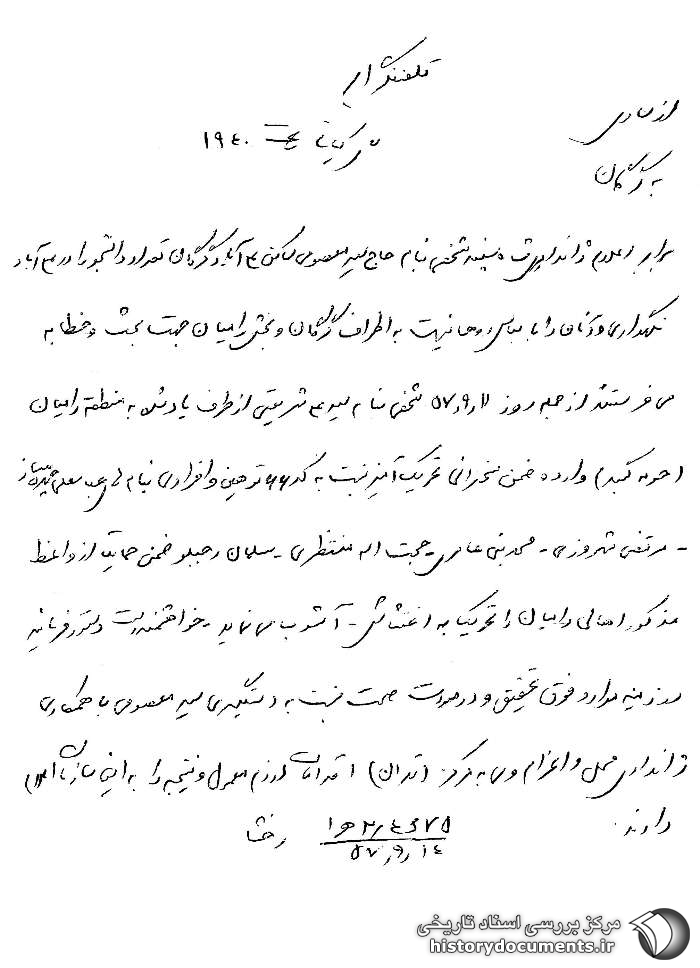 تلفنگرام
از ساری
به گرگان
۱۹۴۰
برابر اعلام ژاندارمری شخصی بنام حاج سید معصومی ساکن آباد گرگان تعداد دانشجو را در آباد
نگهداری و آنان را با لباس روحانیت به اطراف گرگان و بخش رامیان جهت بحث و خطابه
می فرستد از جمله روز ۵۷٫۹٫۱۱ شخصی بنام سید شریفی از طرف یاد شده به منطقه رامیان
(حومه گنبد) وارد و ضمن سخنرانی تحریک آمیز نسبت به کد ۶۶ توهین و افرادی بنام
- مرتضی نوروزی - محمد تقی عباسی - حجت اله منتظری - سلمان رجبلو ضمن حمایت از واعظ
مذکور اهالی رامیان را تحریک به اغتشاش - آشوب می نماید - خواهشمند است دستور فرمائید
در زمینه موارد فوق تحقیق و در صورت صحت نسبت به دستگیری سید معصومی با همکاری
ژاندارمری محل و اعزام وی به مرکز (تهران) اقدامات لازم معمول و نتیجه را به این سازمان اعلام
دارند.
۵۷٫۹٫۱۴
مرکز بررسی اسناد تاریخی
historydocuments.ir